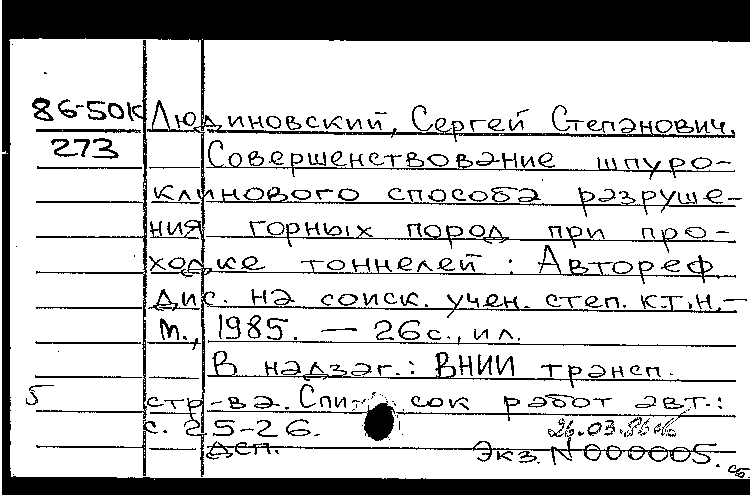 86-50К Людиновский, Сергей Степанович.
273 Совершенствование шпуро-
клинового способа разруше-
ния горных пород при про-
ходке тоннелей : Автореф.
дис. на соиск. учен. степ. к.т.н.-
М., 1985. — 26с., ил.
В надзаг.: ВНИИ трансп.
5 стр-ва. Список работ авт.:
с. 25-26. 26.03.86
дсп. Экз. N 000005.